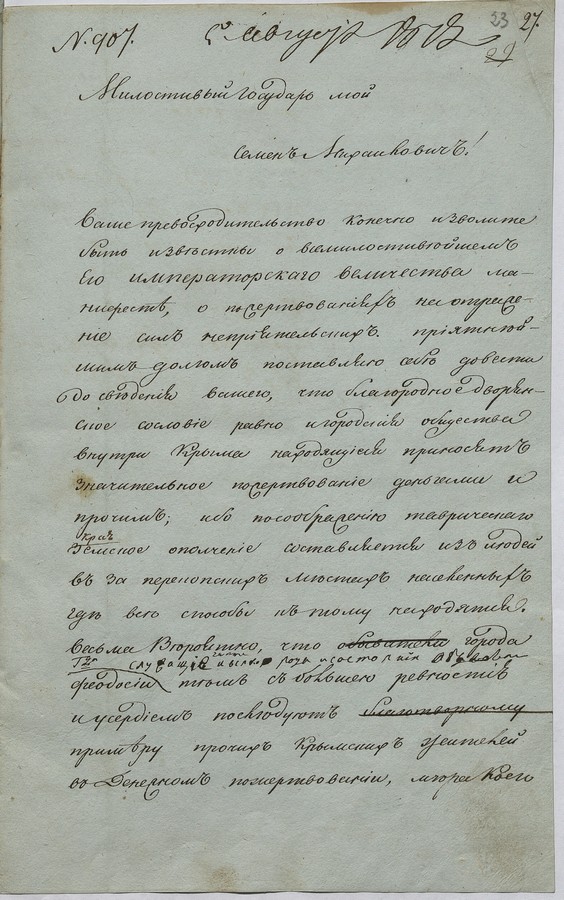 N. 907. 5го августа 1812 23 27.
Милостивый государь мой
Семенъ Михайловичъ!
Ваше превосходительство конечно изволите
быть известны о всемилостивейшемъ
Его императорскаго величества ма-
нифесте, о пожертвованiяхъ на отраже-
нiе силъ непрiятельскихъ. прiятней-
шимъ долгомъ поставляю себе довести
до сведенiя вашего, что благородное дворян-
ское сословiе равно и городскiя общества
внутри Крыма находящiяся приносятъ
значительное пожертвованiе деньгами и
прочимъ; ибо по соображенiю таврическаго
края
Земское ополченiе составляется изъ людей
въ за перекопскихъ местахъ населенныхъ
где все способы къ тому находятся.
Весьма Вероятно, что обыватели города
всякаго рода и состоянiя
феодосiи темъ съ большею ревностiю
и усердiемъ последуютъ благотворному
примеру прочихъ Крымскихъ жителей
въ Денежномъ пожертвованiи, мера коего